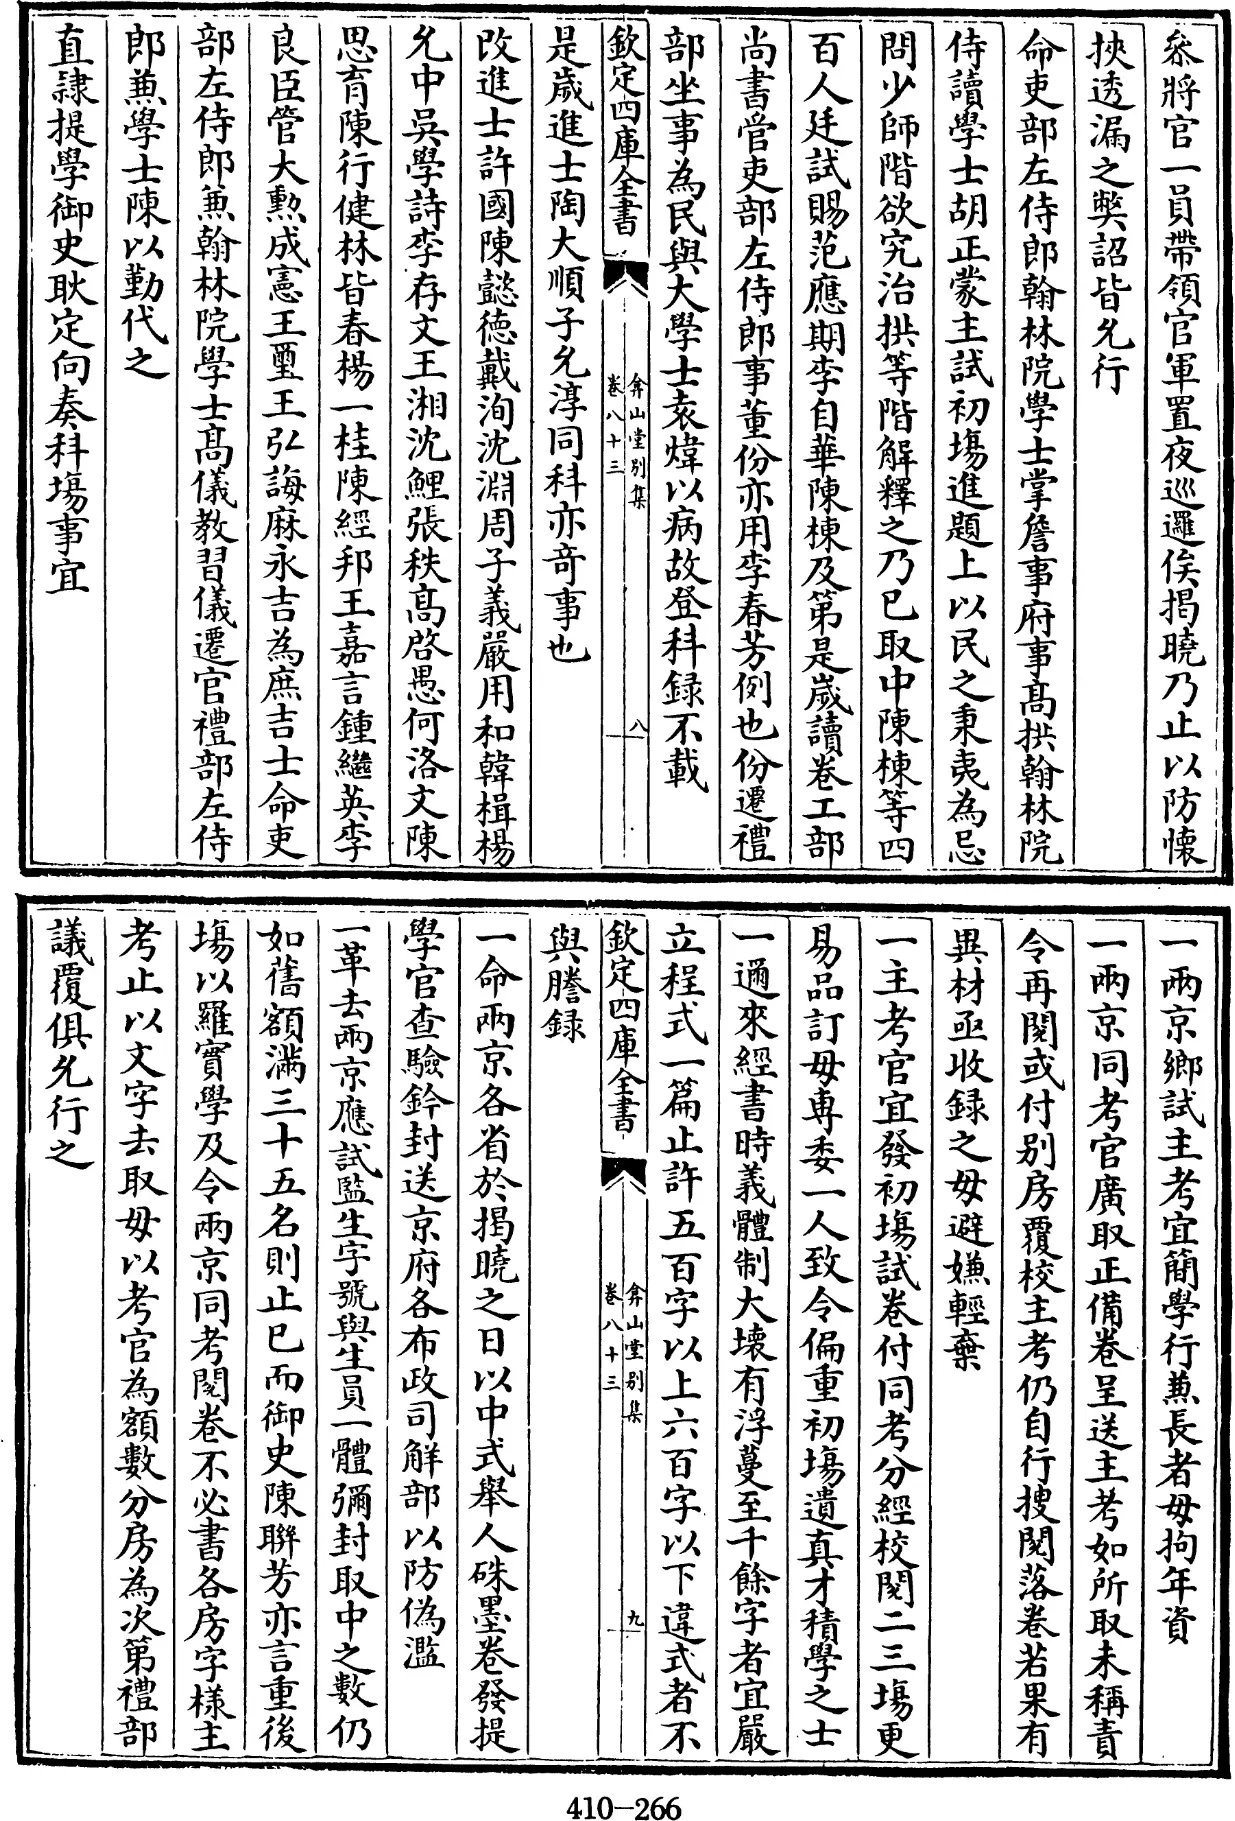 叅將官一員帶領官軍置夜巡邏俟揭曉乃止以防懷
挾透漏之弊詔皆允行
命吏部左侍郎翰林院學士掌詹事府事髙拱翰林院
侍讀學士胡正蒙主試初塲進題上以民之秉夷為忌
問少師階欲究治拱等階解釋之乃已取中陳棟等四
百人廷試賜范應期李自華陳棟及第是歲讀卷工部
尚書管吏部左侍郎事董份亦用李春芳例也份遷禮
部坐事為民與大學士袁煒以病故登科録不載
欽定四庫全書
弇山堂别集
卷八十三
八
是歲進士陶大順子允淳同科亦竒事也
改進士許國陳懿德戴洵沈淵周子義嚴用和韓楫楊
允中吳學詩李存文王湘沈鯉張秩髙啓愚何洛文陳
思育陳行健林皆春楊一桂陳經邦王嘉言鍾繼英李
良臣管大勲成憲王璽王弘誨麻永吉為庶吉士命吏
部左侍郎兼翰林院學士髙儀教習儀遷官禮部左侍
郎兼學士陳以勤代之
直隷提學御史耿定向奏科塲事宜
一兩京鄉試主考宜簡學行兼長者毋拘年資
一兩京同考官廣取正備卷呈送主考如所取未稱責
令再閱或付别房覆校主考仍自行搜閱落卷若果有
異材亟收録之毋避嫌輕棄
一主考官宜發初塲試卷付同考分經校閱二三塲更
易品訂毋専委一人致令偏重初塲遺真才積學之士
一邇來經書時義體制大壊有浮蔓至千餘字者宜嚴
立程式一篇止許五百字以上六百字以下違式者不
欽定四庫全書
弇山堂别集
卷八十三
九
與謄録
一命兩京各省於揭曉之日以中式舉人硃墨卷發提
學官查驗鈐封送京府各布政司解部以防偽濫
一革去兩京應試監生字號與生員一體彌封取中之數仍
如舊額滿三十五名則止已而御史陳聨芳亦言重後
塲以羅實學及令兩京同考閱卷不必書各房字様主
考止以文字去取毋以考官為額數分房為次第禮部
議覆俱允行之
410-266